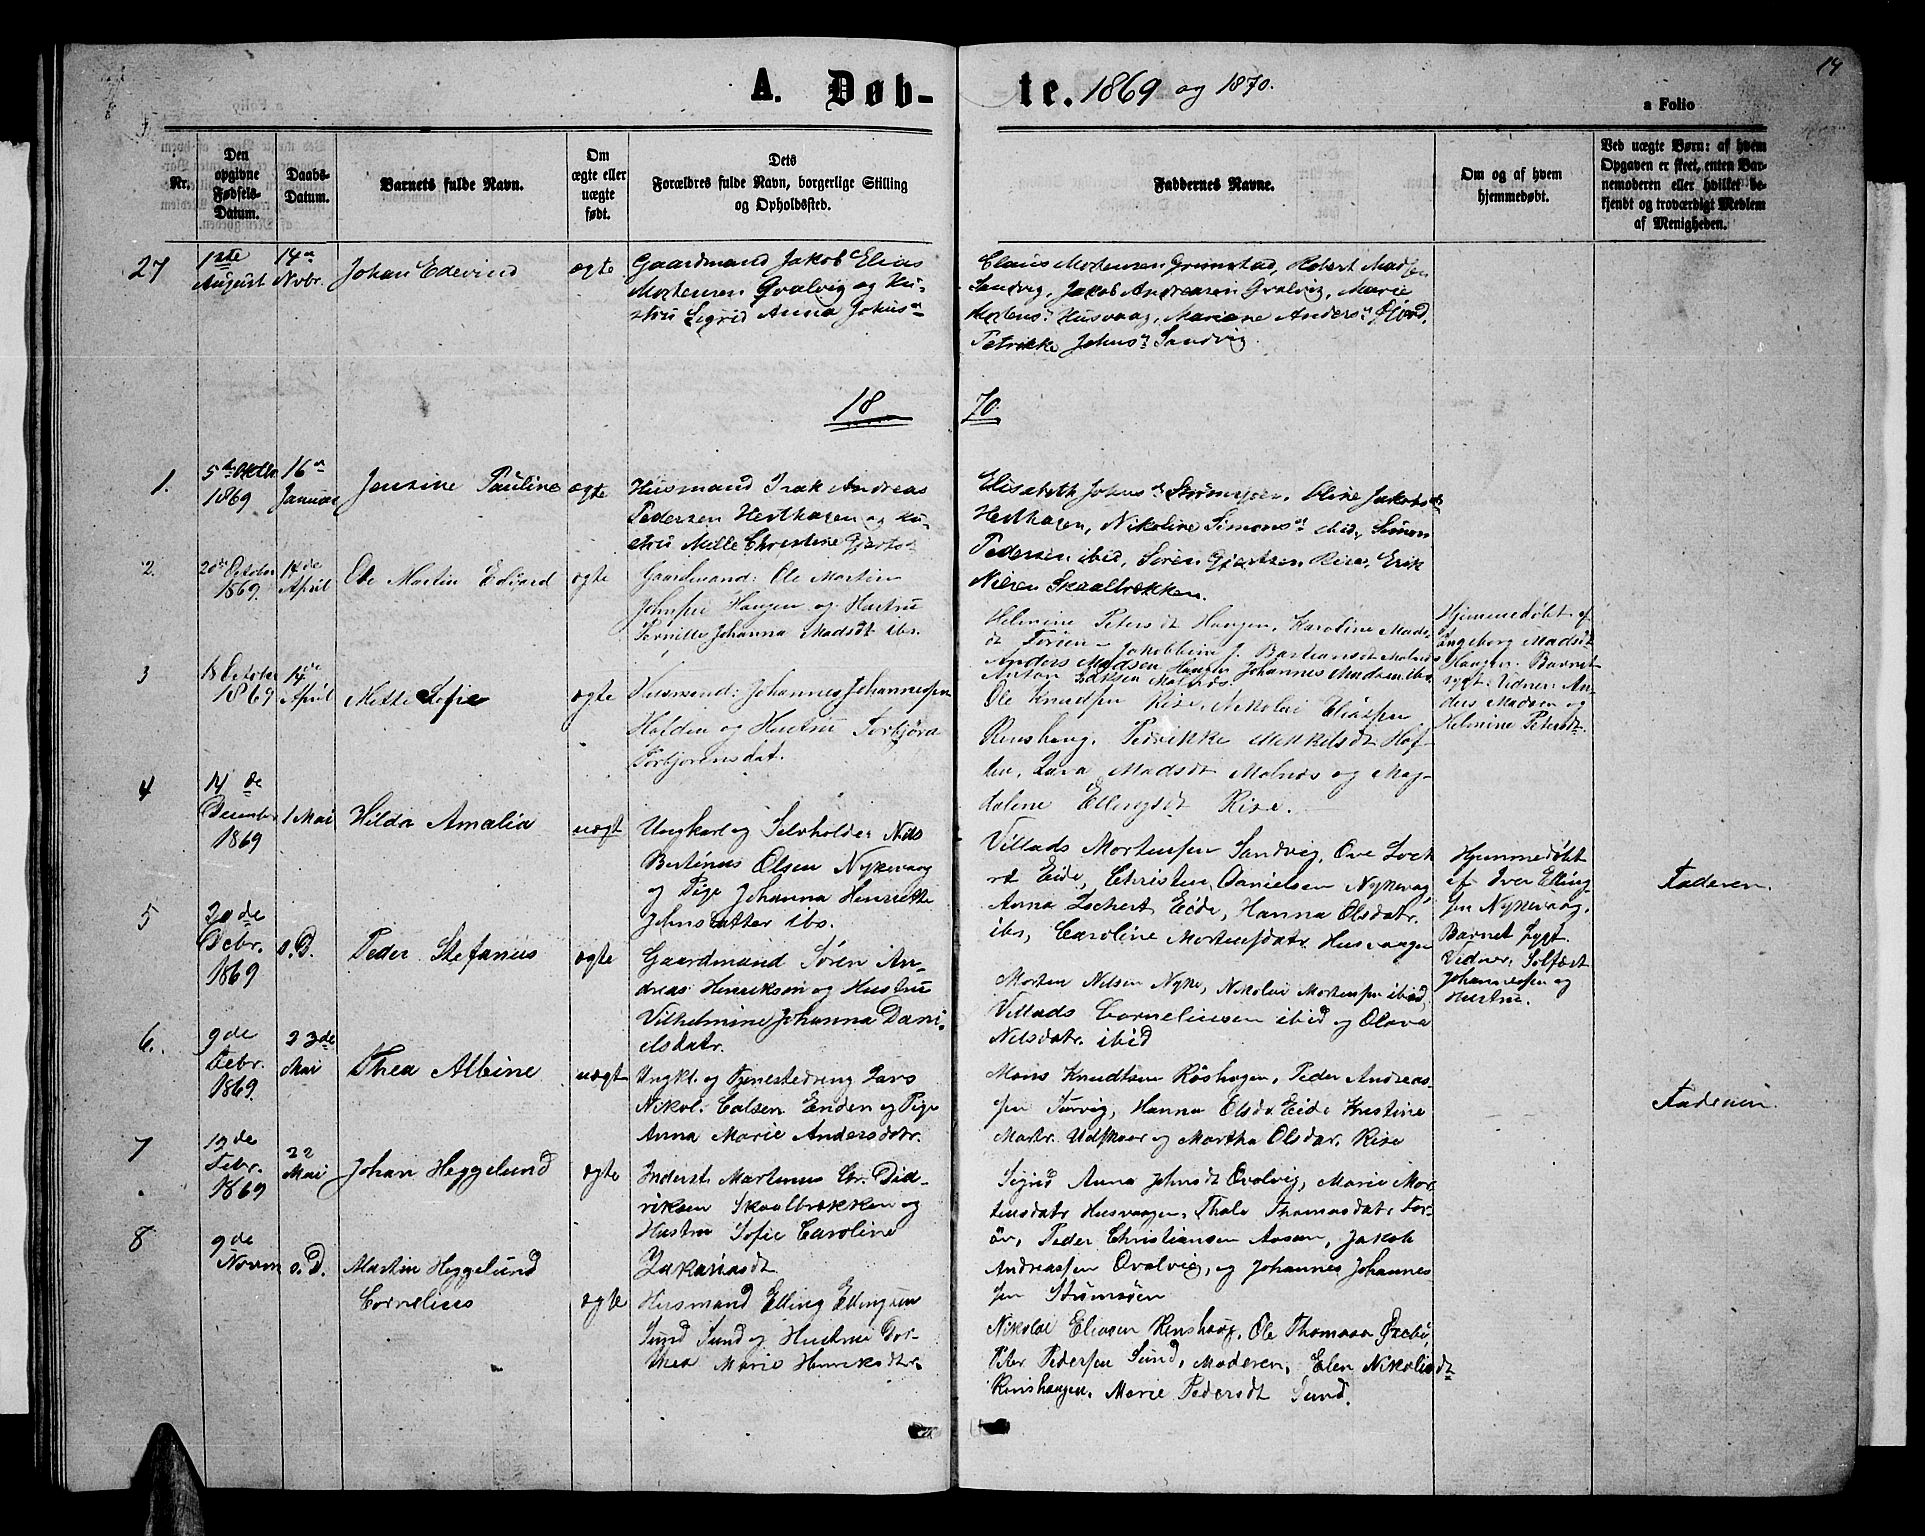 14
A. Døb-
te. 1869 og 1870.
a Folio
Nr.
Den
opgivne
Fødsels-
Datum.
Daabs-
Datum.
Barnets fulde Navn.
Om
ægte eller
uægte
født.
Dets
Forældres fulde Navn, borgerlige Stilling
og Opholdssted.
Faddernes Navne.
Om og af hvem
hjemmedøbt.
Ved uægte Børn: af hvem
Opgaven er skeet, enten Bar-
nemoderen eller hvilket be-
kjendt og troværdigt Medlem
af Menigheden.
27
1ste
August
14de
Novbr.
Johan Edevind
ægte
Gaardmand Jakob Elias
Mortensen Qvalvig og Hu-
stru Sigrid Anna Johnsdr
Claus Mortensen Grimstad, Hobert Madsen
Sandvig, Jakob Andreasen Qvalvig, Marie
Mortensdr Husvaag, Mariane Andersdr Fjord,
Petrikke Johnsdr Sandvig.
18
70.
1.
5te Oktbr
1869
16de
Januar
Jensine Pauline
ægte
Husmand Isak Andreas
Pedersen Hesthagen og Hu-
stru Mille Christine Gjertsdr
Elisabeth Johnsdr Strømsjøen, Oline Jakobsdr
Hesthagen, Nikoline Simonsdr ibid, Simon
Pedersen ibid, Søren Gjertsen Rise, Erik
Nilsen Skaalbrækken.
2.
20de October
1869.
14de
April
Ole Martin Edvard
ægte
Gaardmand: Ole Martin
Johnsen Haugen og Hustru
Pernille Johanna Madsdt ibs.
Helmine Petersdt Haugen, Karoline Mads-
dt Forøen, Jakobbine J. Bastiansdt Malnes
Anders Madsen Haugen Johannes Madsen ibs.
Anton Isaksen Malnes.
Hjemmedøbt af
Ingeborg Madsdt
Haugen. Barnet
sygt. Vidner: An-
ders Madsen og
Helmine Petersdt.
3
18 October
1869
14de
April
Mette Sofie
ægte
Husmand: Johannes Johannessen
Hafden og Hustru Torbjøra
Torbjørensdat.
Ole Knudsen Rise, Nikolai Eliassen
Renshaug, Petrikke Mikkelsdt Haf-
den, Lava Madsdt Malnes og Mag-
dalene Ellingsdt Rise.
4
14de
December
1869
1 Mai
Hilda Amalia
uægt
Ungkarl og Selvholder Nils
Bertinus Olsen Nykevaag
og Pige Johanna Henriette
Johnsdatter ibs.
Villads Mortensen Sandvig, Ove Loch-
rt Eide, Christen Danielsen Nykevaag,
Anna Lochert Eide, Hanna Olsdatr.
ibs, Caroline Mortensdatr Husvaagen
Hjemmedøbt
af Iver Elling-
sen Nykevaag.
Barnet sygt.
Vidner: Solfæst
Johannessen og
Hustru.
Faderen.
5
20de
Debr.
1869
s. D.
Peder Stefanus
ægte
Gaardmand Søren An-
dreas Henriksen og Hustru
Vilhelmine Johanna Dani-
elsdatr.
Morten Nilsen Nyke, Nikolai Mortensen ibid,
Villads Corneliusen ibid og Olava
Nilsdatr. ibid
6.
9de
Debr.
1869.
23de
Mai
Thea Albine
uægt
Ungkl. og Tjenestedreng Lars
Nikol. Carlsen Enden og Pige
Anna Marie Andersdatr.
Mons Knudtsen Røshagen, Peder Andreas-
sen Torvig, Hanna Olsdr Eide Kristine
Martr. Udskaar og Martha Olsdar. Rise
Faderen.
7
19de
Febr.
1869
22
Mai
Johan Heggelund
ægte
Inderst Martinus Chr. Did-
riksen Skaalbrækken og
Hustru Sofie Caroline
Zakariasdt
Sigrid Anna Johnsdt Qvalvig, Marie Mor-
tensdatr Husvaagen, Thale Thomasdatr For-
øn, Peder Christiansen Aasan, Jakob
Andreassen Qvalvig, og Johannes Johannes
sen Strømsøen
8
9de
Novm
s. D.
Martin Heggelund
Cornelius
ægte
Husmand Elling Ellingsen
Sund Sund og Hustru Dor-
thea Marie Henriksdtr.
Nikolai Eliasen Renshaug, Ole Thomasen Øxebø,
Peter Pedersen Sund, Moderen, Elen Nikolaisdt
Renshaugen, Marie Pedersdt Sund.